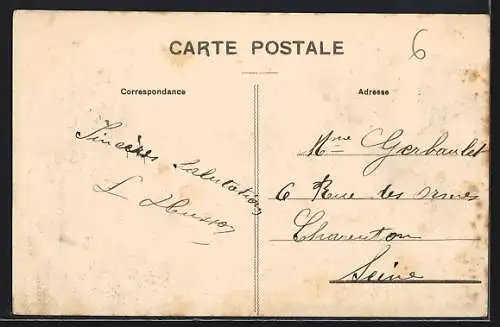 6
CARTE POSTALE
Correspondance
Adresse
Sincères Salutations
L Husson
Mme Gerbault
6 Rue des Ormes
Charenton
Seine